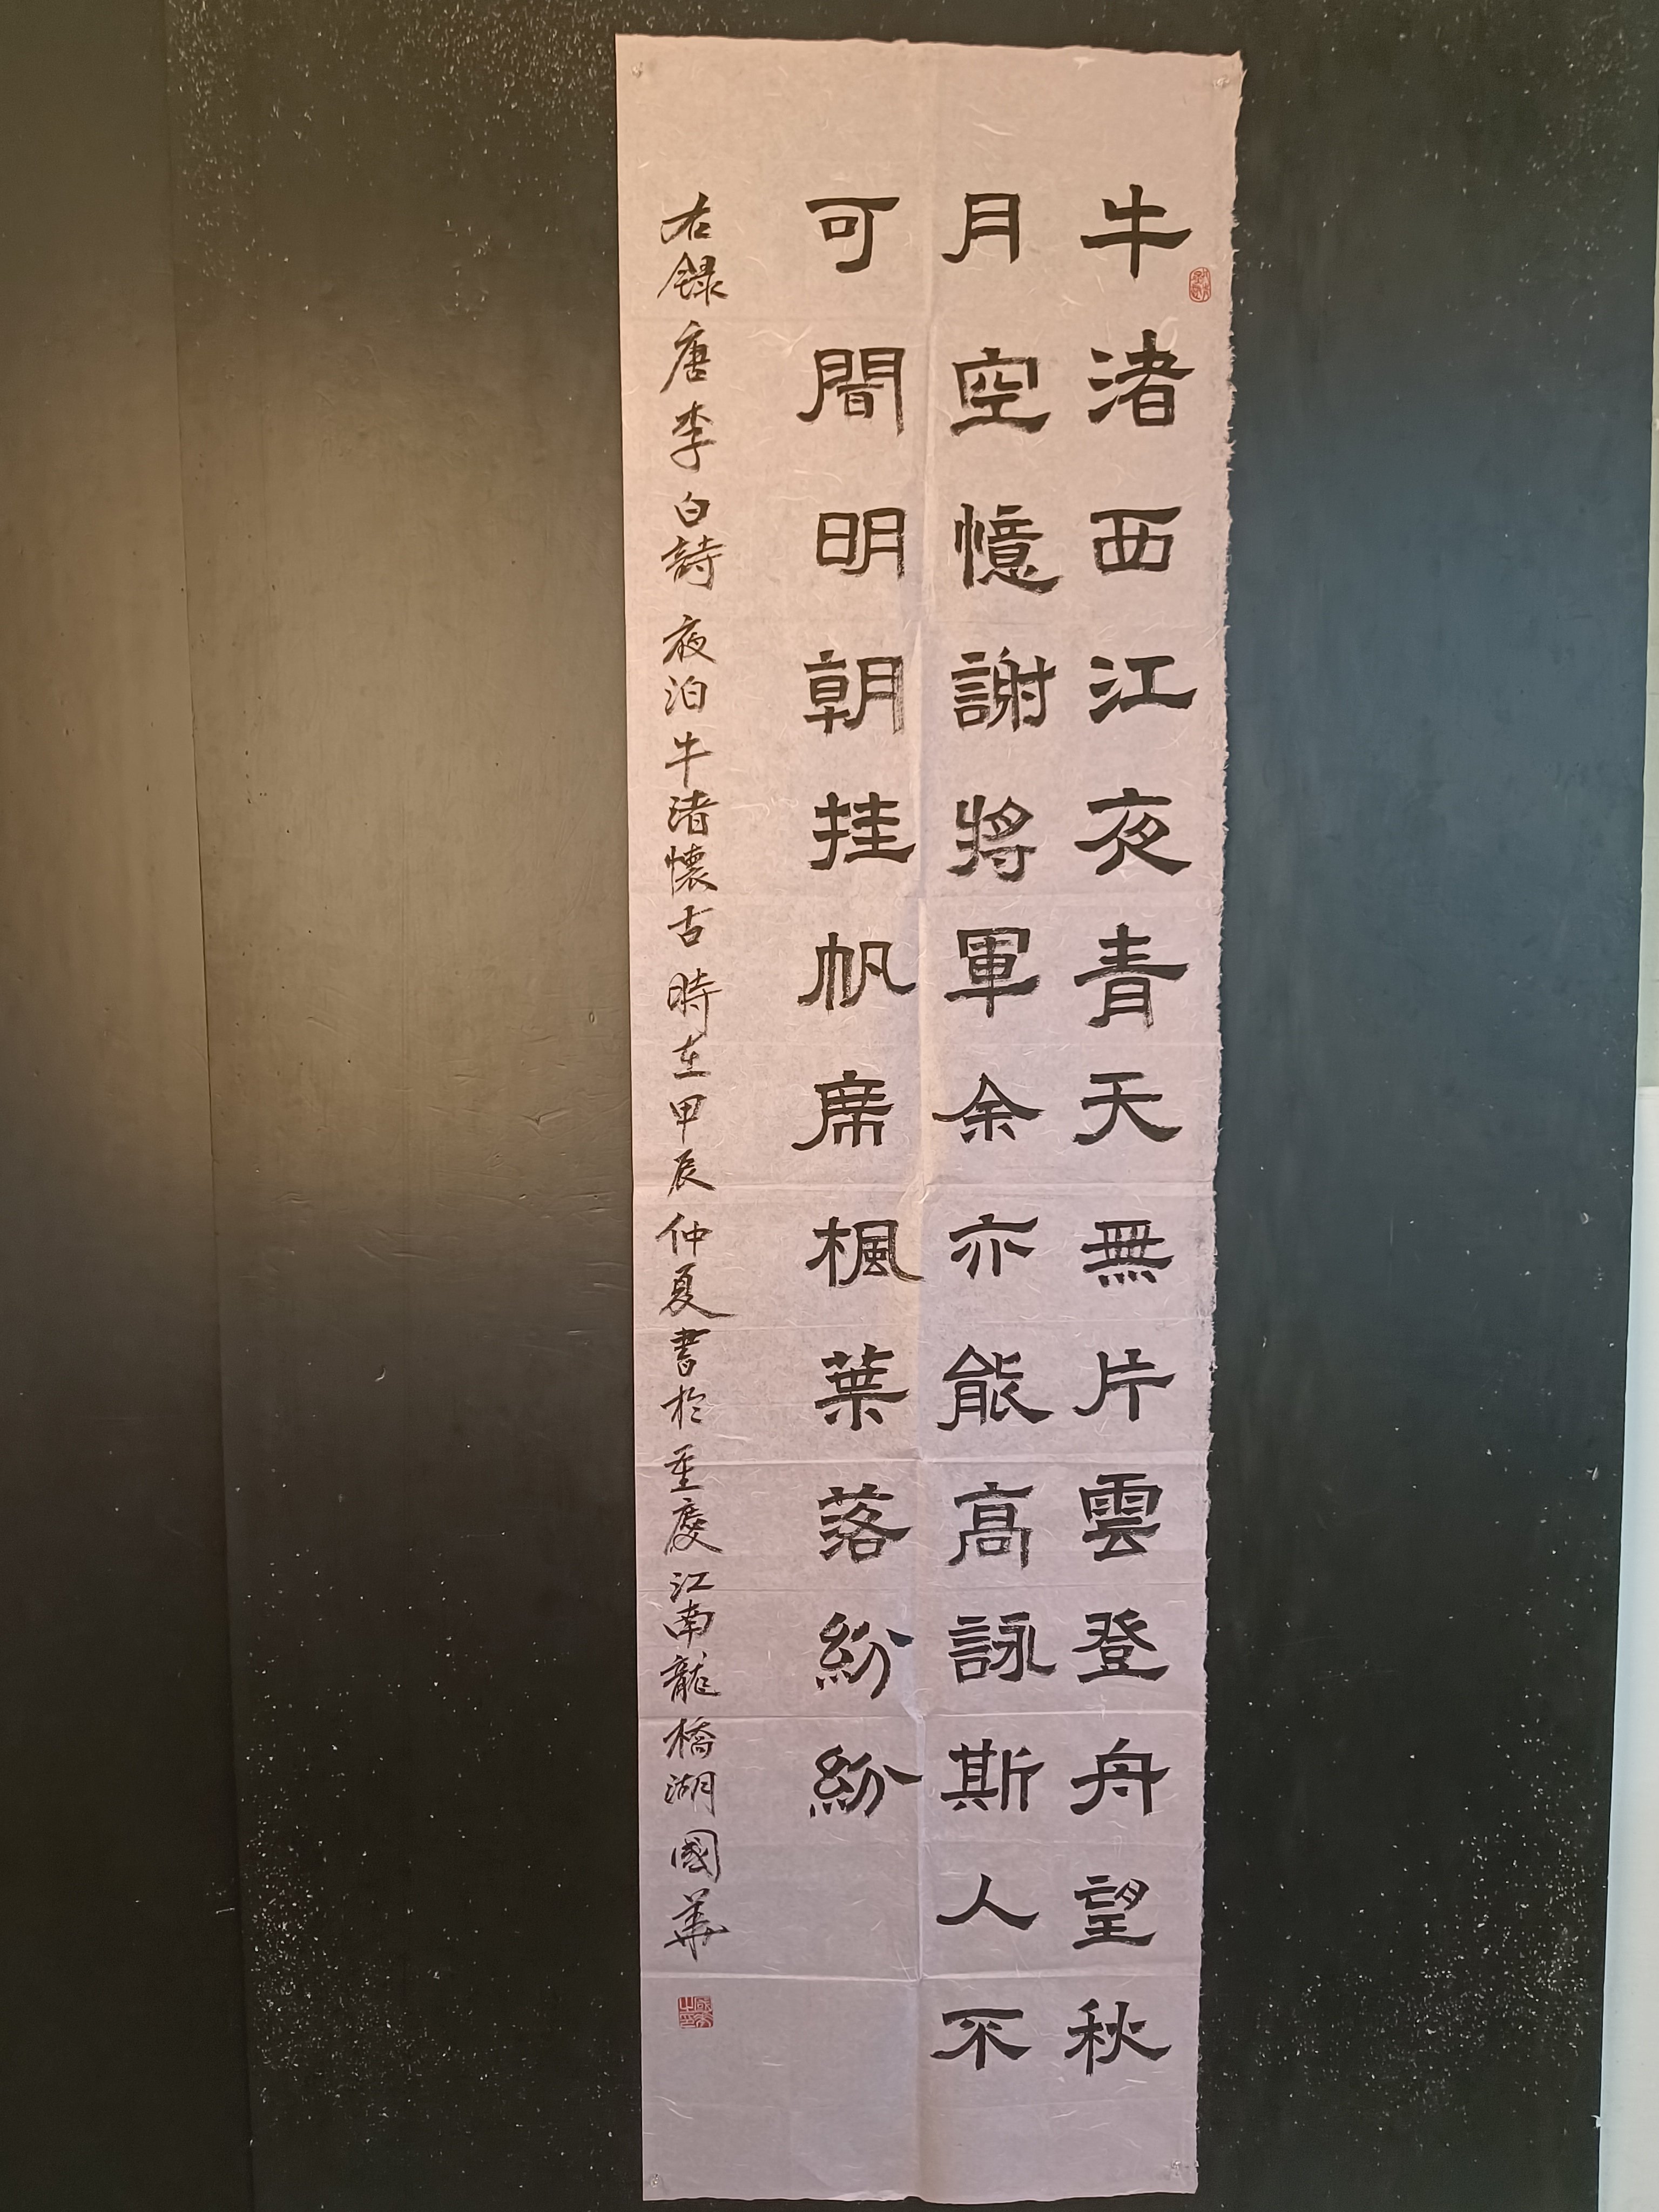 牛渚西江夜青天無片雲登舟望秋
月空憶謝將軍余亦能高詠斯人不
可間明朝挂帆席楓葉落紛紛
右録唐李白詩夜泊牛渚懷古時在甲辰仲夏書於重慶江南龍橋湖國華